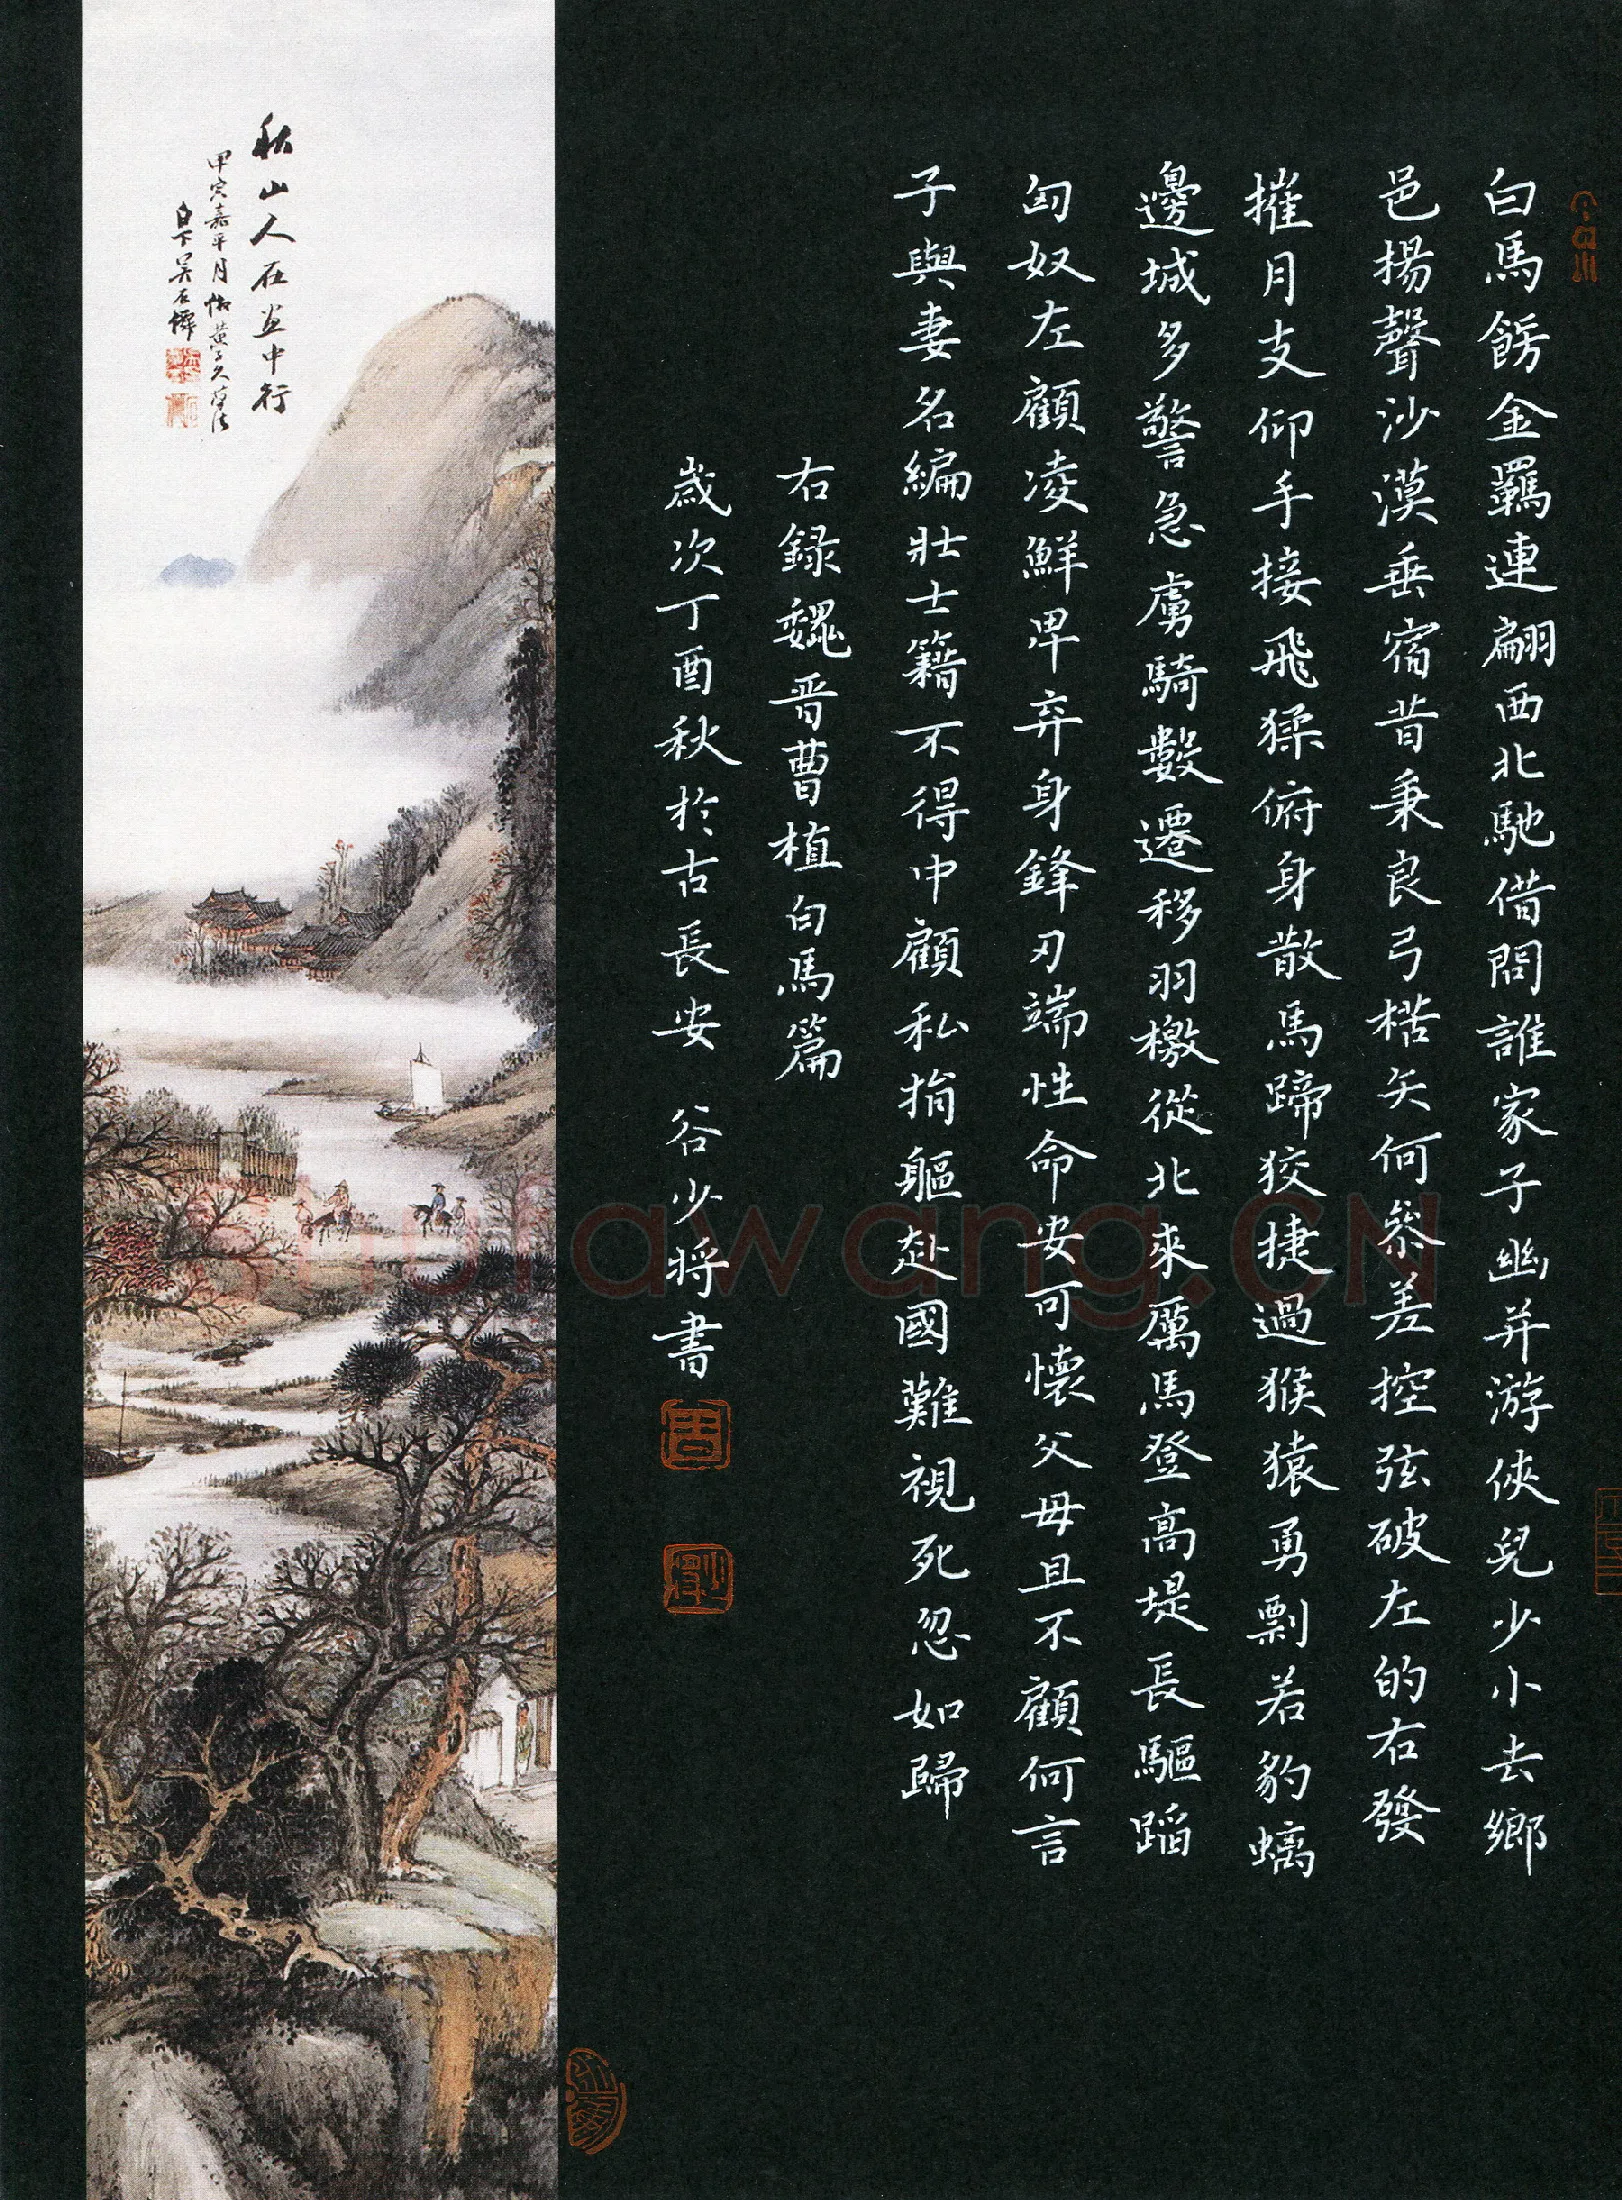 白馬餝金羈連翩西北馳借問誰家子幽并游俠兒少小去鄉
邑揚聲沙漠垂宿昔秉良弓楛矢何參差控弦破左的右發
摧月支仰手接飛猱俯身散馬蹄狡捷過猴猿勇剽若豹螭
邊城多警急虜騎數遷移羽檄從北來厲馬登高堤長驅蹈
匈奴左顧凌鮮卑弃身鋒刃端性命安可懷父母且不顧何言
子與妻名編壯士籍不得中顧私捐軀赴國難視死忽如歸
右録魏晋曹植白馬篇
歲次丁酉秋於古長安 谷少將書
秋山人在畫中行
甲寅嘉平月 黃子久筆法
白下吴石僊